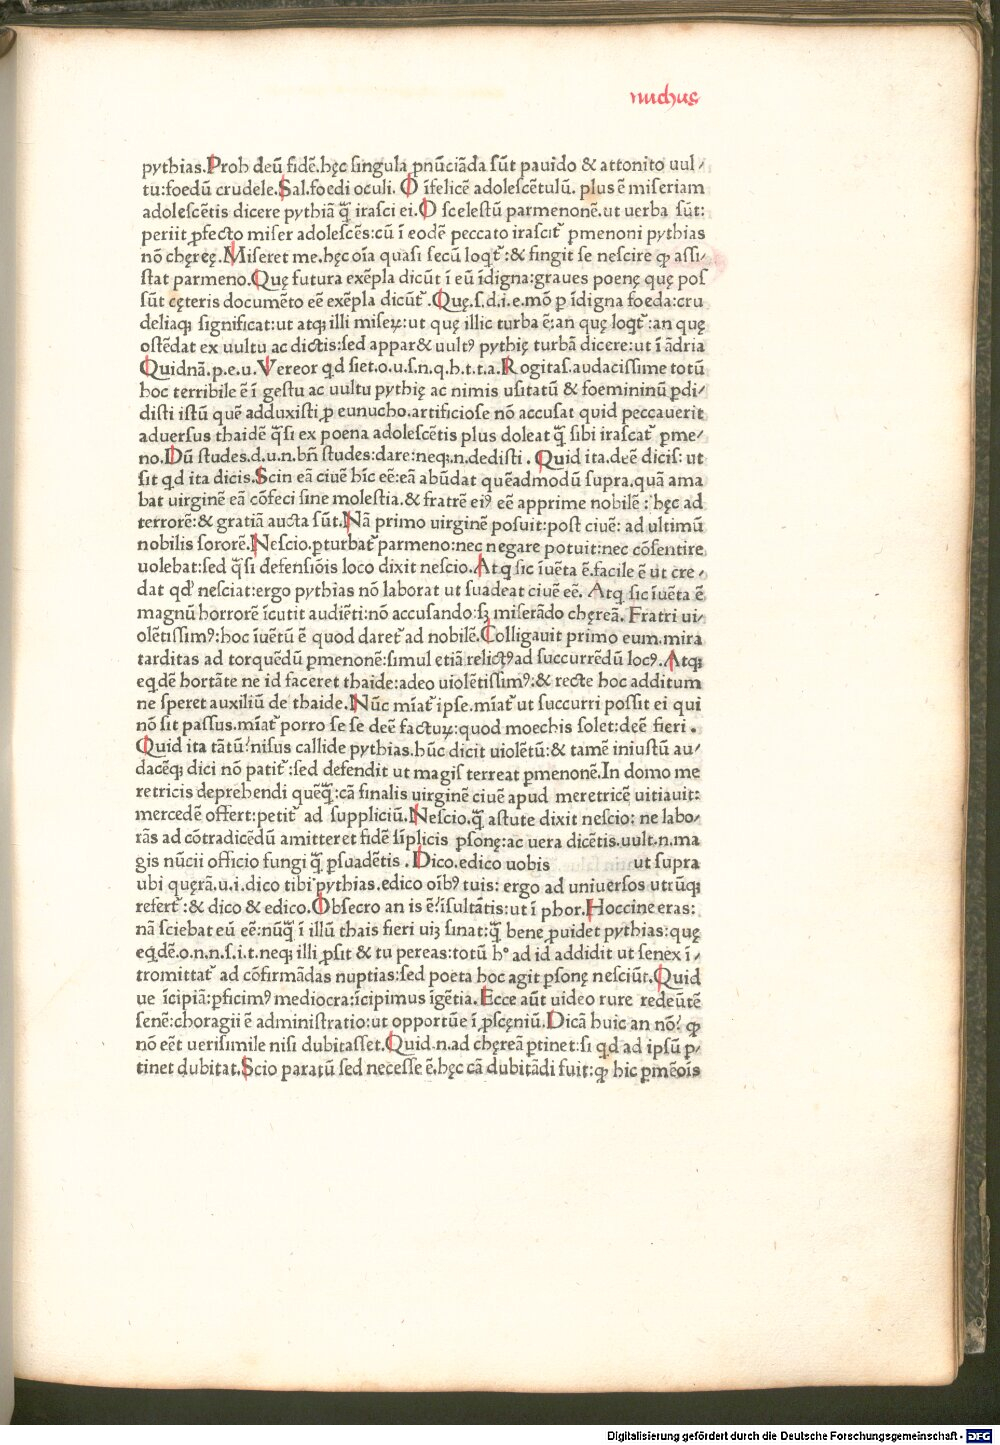 nuchus
pythias.Proh deū fidē.hęc singula pnūciāda sūt pauido & attonito uul⸗
tu:foedū crudele.Sal.foedi oculi. O īfelicē adolescētulū. plus ē miseriam
adolescētis dicere pythiā q̄ irasci ei.O scelestū parmenonē.ut uerba sūt:
periit ꝓfecto miser adolescēs:cū ī eodē peccato irascit᷑ pmenoni pythias
nō chęręę.Miseret me.hęc oīa quasi secū loqt᷑:& fingit se nescire qꝫ assi⸗
stat parmeno.Quę futura exēpla dicūt ī eū īdigna:graues poenę quę pos
sūt cęteris documēto eē exēpla dicūt᷑.Quę.s.d.i.e.mō p īdigna foeda:cru
deliaqꝫ significat:ut atqꝫ illi miseꝝ:ut quę illic turba ē:an quę loqt᷑:an quę
ostēdat ex uultu ac dictis:sed appar& uultꝰ pythię turbā dicere:ut ī ādria
Quidnā.p.e.u.Vereor qd siet.o.u.s.n.q.h.t.t.a.Rogitas.audacissime totū
hoc terribile ē ī gestu ac uultu pythię ac nimis usitatū & foemininū ꝑdi⸗
disti istū quē adduxisti ꝓ eunucho.artificiose nō accusat quid peccauerit
aduersus thaidē q̄si ex poena adolescētis plus doleat q̄ sibi irascat᷑ pme⸗
no.Dū studes.d.u.n.bn̄ studes:dare:neqꝫ.n.dedisti . Quid ita.deē dicis: ut
sit qd ita dicis.Scin eā ciuē hīc eē:eā abūdat quēadmodū supra.quā ama
bat uirginē eā cōfeci sine molestia.& fratrē eiꝰ eē apprime nobilē : hęc ad
terrorē:& gratiā aucta sūt.Nā primo uirginē posuit:post ciuē: ad ultimū
nobilis sororē.Nescio.ꝑturbat᷑ parmeno:nec negare potuit:nec cōsentire
uolebat:sed q̄si defensiōis loco dixit nescio.Atqꝫ sic īuēta ē.facile ē ut cre⸗
dat qd nesciat:ergo pythias nō laborat ut suadeat ciuē eē. Atqꝫ sic īuēta ē
magnū horrorē īcutit audiēti:nō accusando:sꝫ miserādo chęreā. Fratri ui⸗
olētissimꝰ:hoc īuētū ē quod daret᷑ ad nobilē.Colligauit primo eum.mira
tarditas ad torquēdū pmenonē:simul etiā relictꝰ ad succurrēdū locꝰ.Atqꝫ
eqdē hortāte ne id faceret thaide:adeo uiolētissimꝰ:& recte hoc additum
ne speret auxiliū de thaide.Nūc mīat᷑ ipse.mīat᷑ ut succurri possit ei qui
nō sit passus.mīat᷑ porro se se deē factuꝝ:quod moechis solet:deē fieri .
Quid ita tātū?nisus callide pythias.hūc dicit uiolētū:& tamē iniustū au⸗
dacēqꝫ dici nō patit᷑:sed defendit ut magis terreat pmenonē.In domo me
retricis deprehendi quēq̄:cā finalis uirginē ciuē apud meretricē uitiauit:
mercedē offert:petit᷑ ad suppliciū.Nescio.q̄ astute dixit nescio: ne labo⸗
rās ad cōtradicēdū amitteret fidē sīplicis psonę:ac uera dicētis.uult.n.ma
gis nūcii officio fungi q̄ ꝑsuadētis . Dico.edico uobis ut supra
ubi quęrā.u.i.dico tibi pythias.edico oībꝰ tuis: ergo ad uniuersos utrūqꝫ
refert᷑:& dico & edico.Obsecro an is ē?īsultātis:ut ī phor.Hoccine eras:
nā sciebat eū eē:nūq̄ ī illū thais fieri uiꝫ sinat:q̄ bene ꝓuidet pythias:quę
eqdē.o.n.n.s.i.t.neqꝫ illi ꝓsit & tu pereas:totū h° ad id addidit ut senex ī⸗
tromittat᷑ ad cōfirmādas nuptias:sed poeta hoc agit psonę nesciūt.Quid
ue īcipiā:ꝑficimꝰ mediocra:īcipimus īgētia.Ecce aūt uideo rure redeūtē
senē:choragii ē administratio:ut opportūe ī ꝓscęniū.Dicā huic an nō? qꝫ
nō eēt uerisimile nisi dubitasset.Quid.n.ad chęreā ꝑtinet:si qd ad ipsū ꝑ⸗
tinet dubitat.Scio paratū sed necesse ē.hęc cā dubitādi fuit:qꝫ hic pmēōis
Digitalisierung gefördert durch die Deutsche Forschungsgemeinschaft - DFG